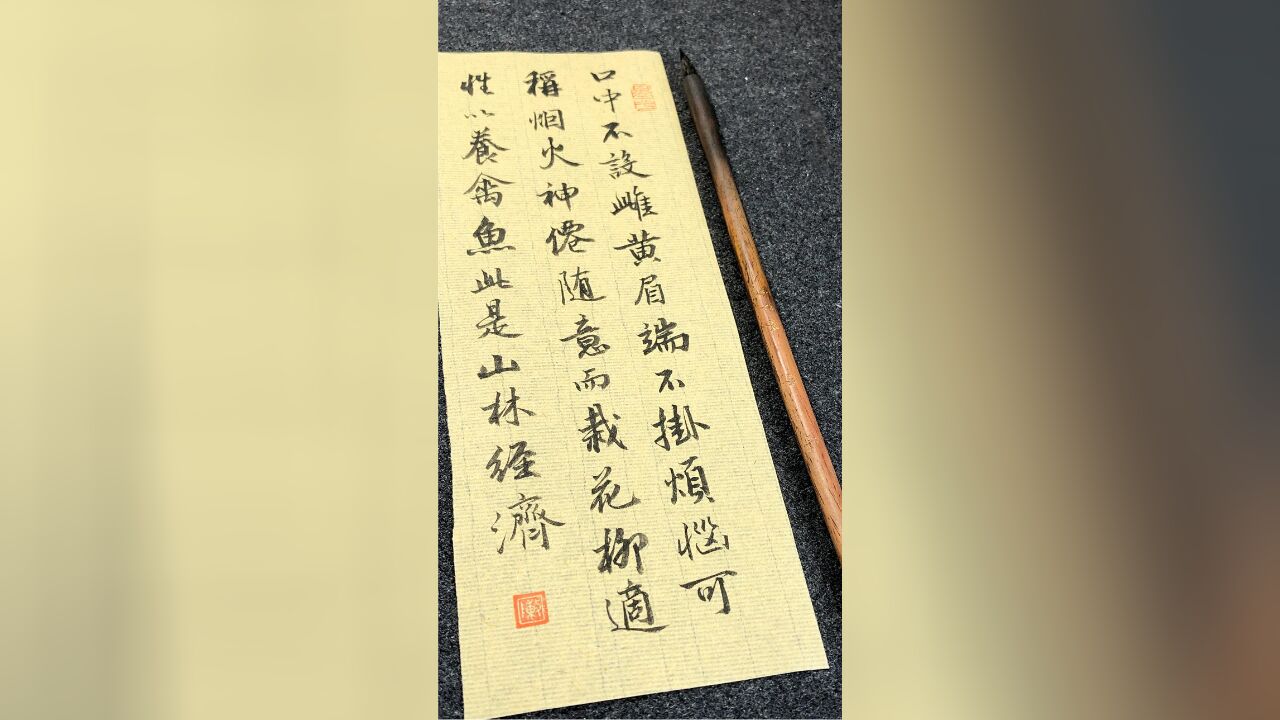 口中不設雌黄眉端不掛煩惱可
稱烟火神僊随意而栽花柳適
性以養禽魚此是山林經濟